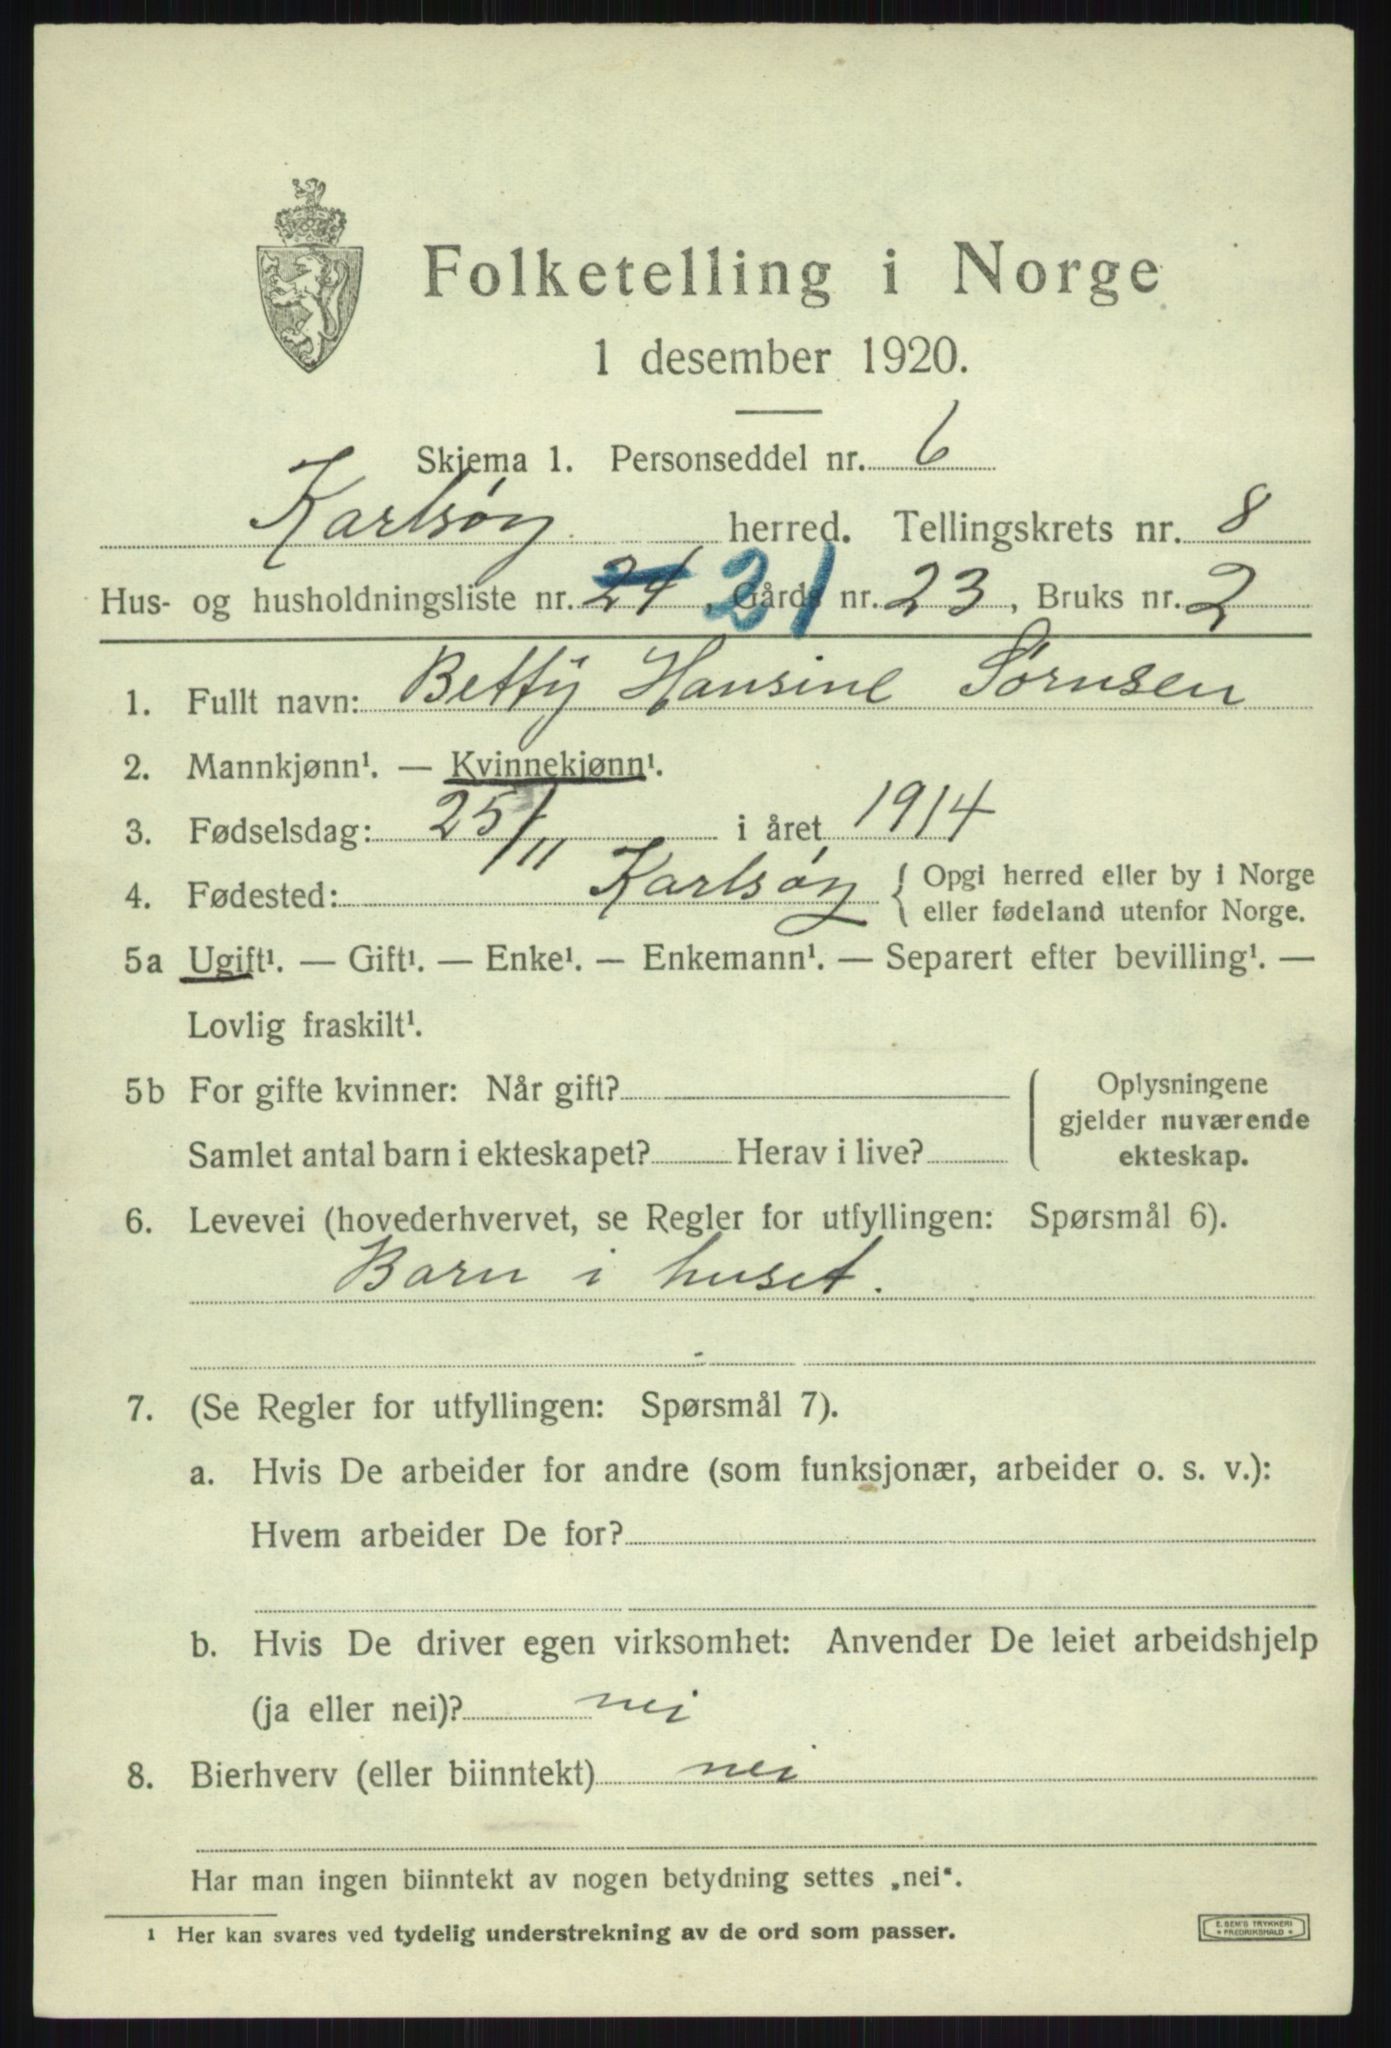 Folketelling i Norge
1 desember 1920.
Skjema 1. Personseddel nr. 6
Karlsøy herred. Tellingskrets nr. 8
Hus- og husholdningsliste nr. 24 21, Gårds nr. 23, Bruks nr. 2
1. Fullt navn: Betty Hansine Sørnsen
2. Mannkjønn¹. — Kvinnekjønn¹.
3. Fødselsdag: 25/11 i året 1914
4. Fødested: Karlsøy { Opgi herred eller by i Norge
eller fødeland utenfor Norge.
5a Ugift¹. — Gift¹. — Enke¹. — Enkemann¹. — Separert efter bevilling¹. —
Lovlig fraskilt¹.
5b For gifte kvinner: Når gift? { Oplysningene
gjelder nuværende
Samlet antal barn i ekteskapet? Herav i live? ekteskap.
6. Levevei (hovederhvervet, se Regler for utfyllingen: Spørsmål 6).
Barn i huset.
7. (Se Regler for utfyllingen: Spørsmål 7).
a. Hvis De arbeider for andre (som funksjonær, arbeider o. s. v.):
Hvem arbeider De for?
b. Hvis De driver egen virksomhet: Anvender De leiet arbeidshjelp
(ja eller nei)? nei
8. Bierhverv (eller biinntekt) nei
Har man ingen biinntekt av nogen betydning settes „nei“.
1 Her kan svares ved tydelig understrekning av de ord som passer.
E. SEM'S TRYKKERI
* FREDRIKSHALD *